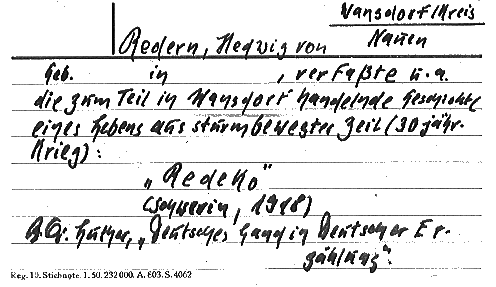 Wansdorf/Kreis
Nauen
Redern, Hedwig von
Geb. in , verfaßte u.a.
die zum Teil in Wansdorf handelnde Geschichte
eines Lebens aus sturmbewegter Zeit (30jähr.
Krieg):
„Redeko"
(Schwerin, 1918)
Luther, „Deutsches Land in Deutscher Er-
zählung".
Reg. 10. Stichnote. 1. 50. 232000. A. 803. S. 4062